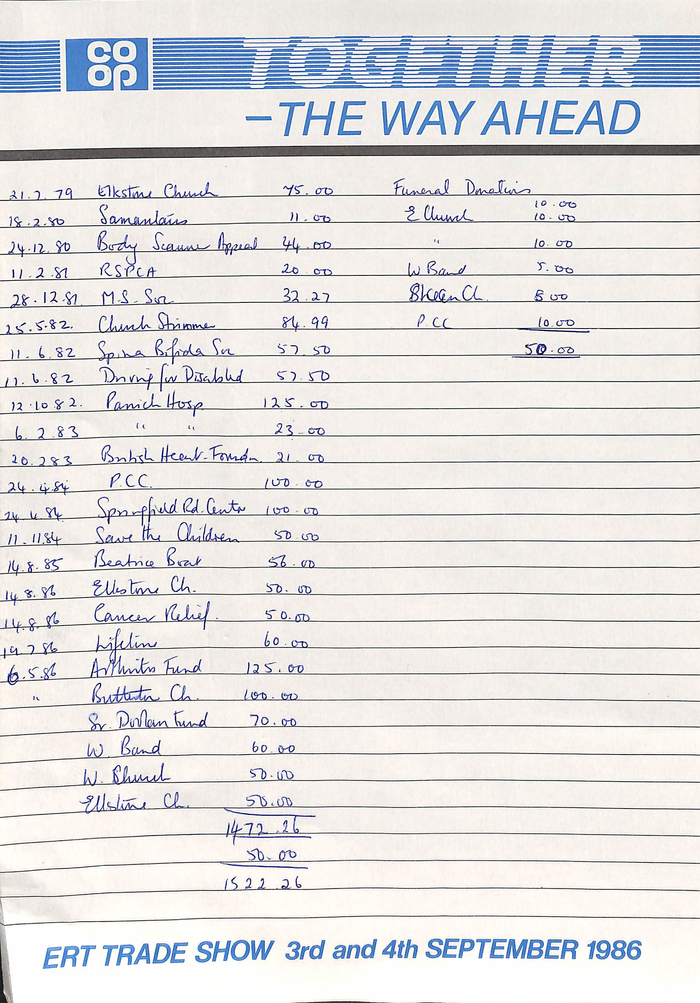 CO OP
TOGETHER
–THE WAY AHEAD
21.7.79 Elkstone Church 75.00
18.2.80 Samaritans 11.00
24.12.80 Body Scanner Appeal 44.00
11.2.81 RSPCA 20.00
28.12.81 M.S. Soc 32.27
25.5.82. Church Strimmer 84.99
11.6.82 Spina Bifida Soc 57.50
11.6.82 Driving for Disabled 57.50
12.10.82. Hosp. 125.00
6.2.83 " " 23.00
20.2.83 British Heart Foundn. 21.00
24.4.84 P.C.C. 100.00
24.4.84 Springfield Rd. Centre 100.00
11.11.84 Save the Children 50.00
14.8.85 Beatrice Boat 56.00
14.8.86 Elkstone Ch. 50.00
14.8.86 Cancer Relief. 50.00
19.7.86 Lifeline 60.00
6.5.86 Arthritis Fund 125.00
" Butterton Ch. 100.00
Fund 70.00
W. Band 60.00
W. Church 50.00
Elkstone Ch. 50.00
1472.26
50.00
1522.26
Funeral Donations
10.00
E Church 10.00
" 10.00
W Band 5.00
Ch. 5.00
P.C.C 10.00
50.00
ERT TRADE SHOW 3rd and 4th SEPTEMBER 1986